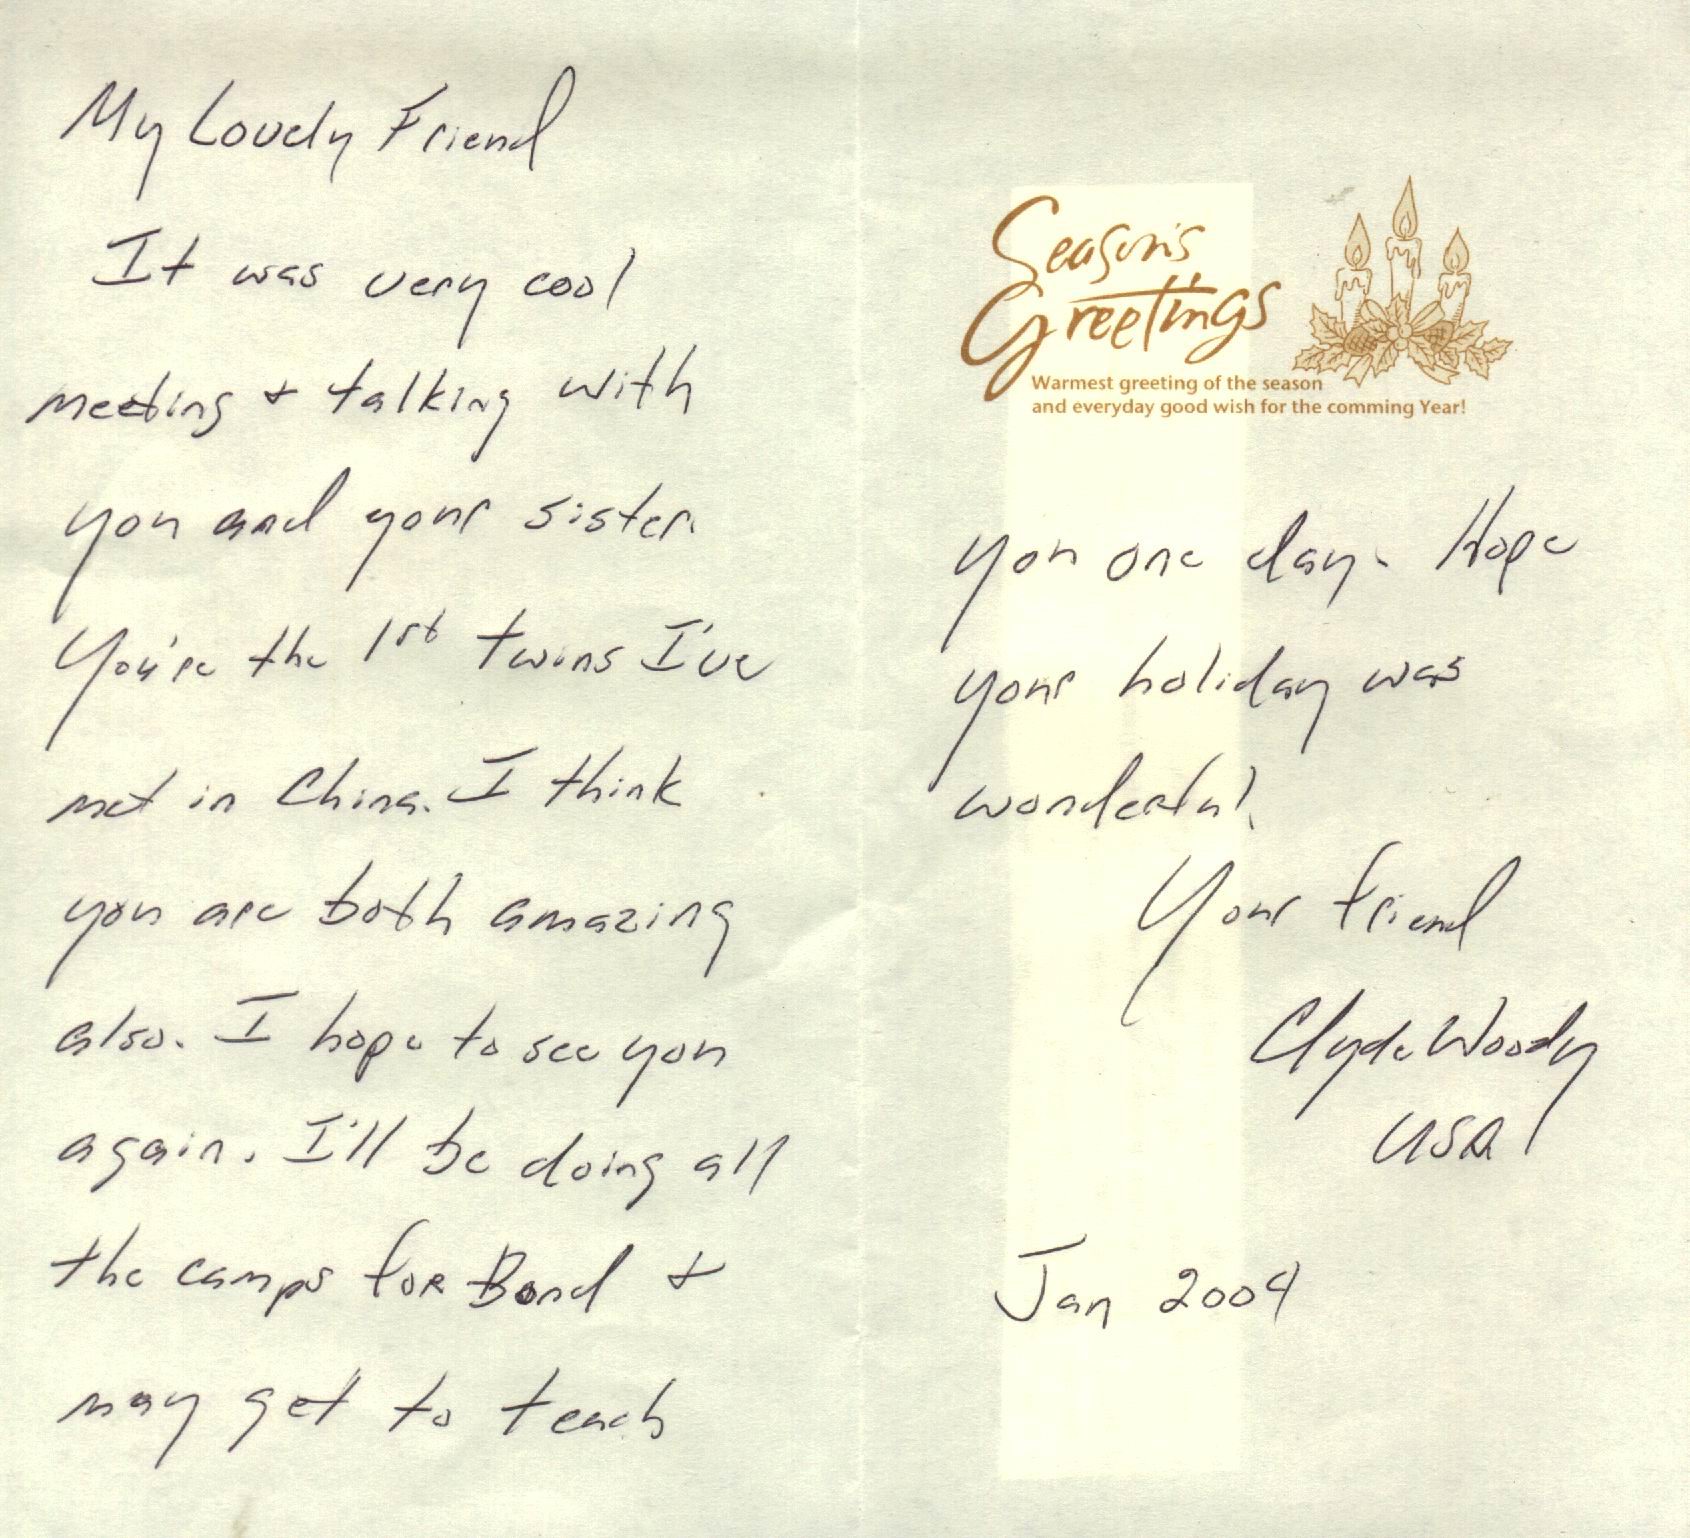 My Lovely Friend
It was very cool
meeting & talking with
you and your sister.
You're the 1st twins I've
met in China. I think
you are both amazing
also. I hope to see you
again. I'll be doing all
the camps for Bond &
may get to teach
Season's
Greetings
Warmest greeting of the season
and everyday good wish for the comming Year!
you one day. Hope
your holiday was
wonderful.
Your friend
Clyde Woody
USA
Jan 2004